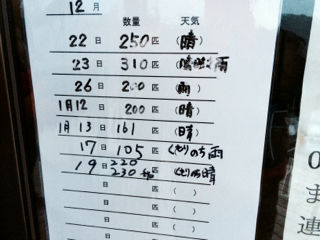 12月
数量 天気
22日 250匹 (晴)
23日 310匹 (雨)
26日 200匹 (雨)
1月12日 200匹 (晴)
1月13日 161匹 (晴)
17日 105匹 (くもりのち雨)
19日 220 230匹 (くもりのち晴)
日 匹 ( )
日 匹 ( )
日 匹 ( )
日 匹
0
ま
連